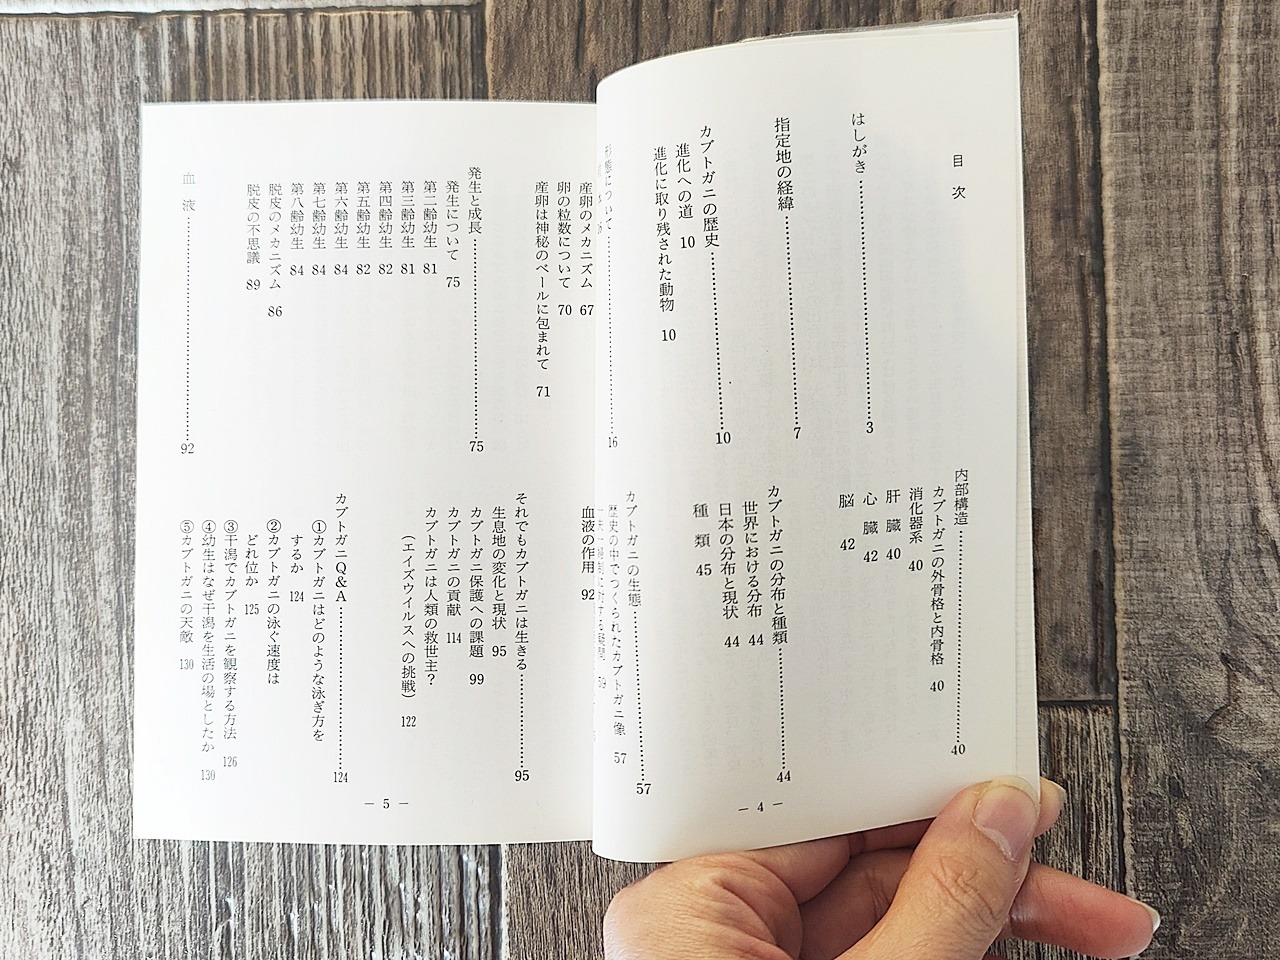 目次
はしがき……3
指定地の経緯……7
カブトガニの歴史……10
進化への道 10
進化に取り残された動物 10
形態について……16
内部構造……40
カブトガニの外骨格と内骨格 40
消化器系 40
肝臓 40
心臓 42
脳 42
カブトガニの分布と種類……44
世界における分布 44
日本の分布と現状 44
種類 45
カブトガニの生態……57
歴史の中でつくられたカブトガニ像 57
― 4 ―
産卵のメカニズム 67
卵の粒数について 70
産卵は神秘のベールに包まれて 71
発生と成長……75
発生について 75
第二齢幼生 81
第三齢幼生 81
第四齢幼生 82
第五齢幼生 82
第六齢幼生 84
第七齢幼生 84
第八齢幼生 84
脱皮のメカニズム 86
脱皮の不思議 89
血液……92
血液の作用 92
それでもカブトガニは生きる……95
生息地の変化と現状 95
カブトガニ保護への課題 99
カブトガニの貢献 114
カブトガニは人類の救世主?
(エイズウイルスへの挑戦) 122
カブトガニQ&A……124
①カブトガニはどのような泳ぎ方を
するか 124
②カブトガニの泳ぐ速度は
どれ位か 125
③干潟でカブトガニを観察する方法 126
④幼生はなぜ干潟を生活の場としたか 130
⑤カブトガニの天敵 130
― 5 ―